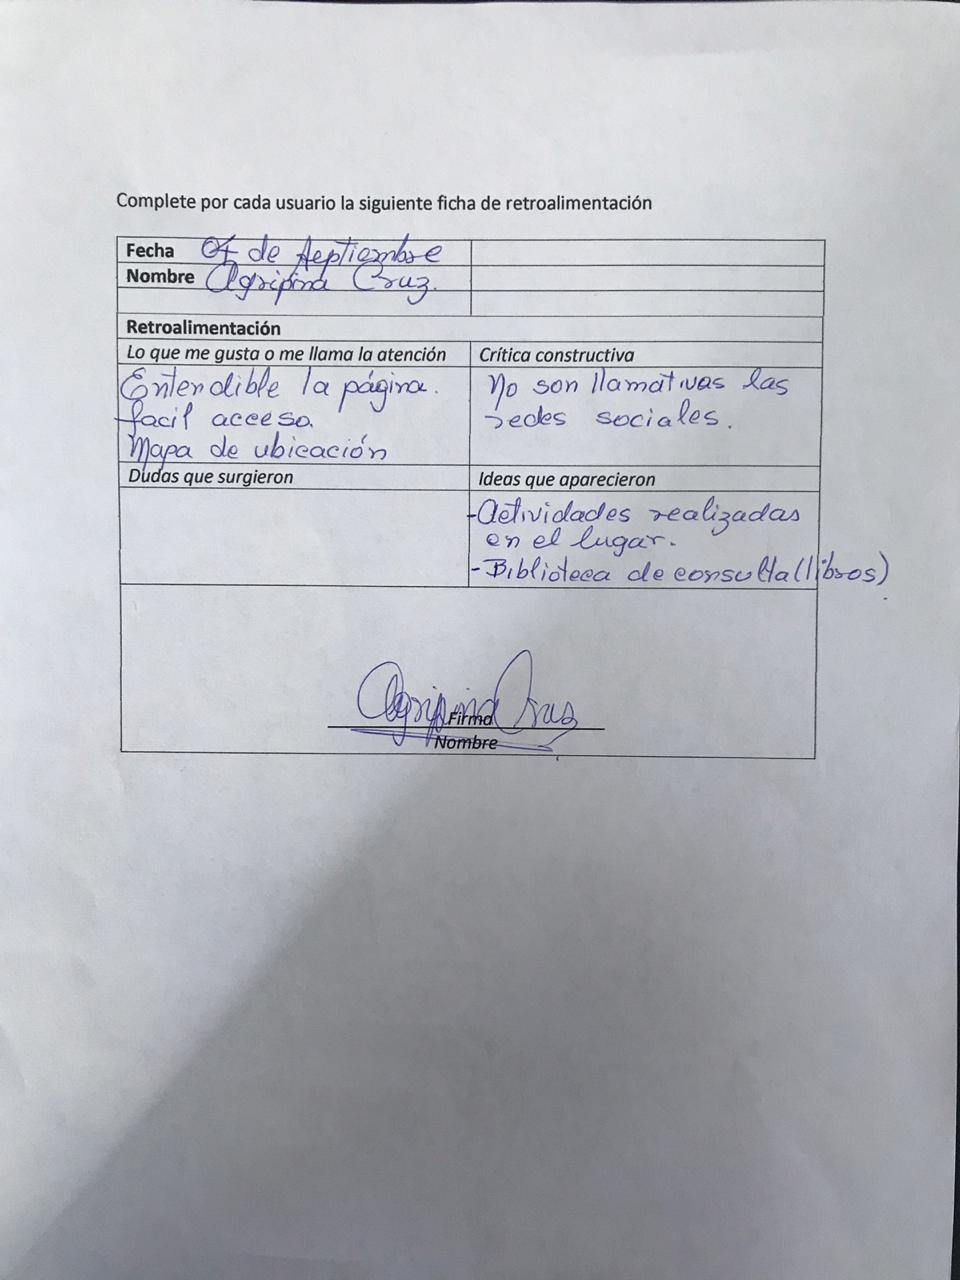 Complete por cada usuario la siguiente ficha de retroalimentación
Fecha 04 de Septiembre
Nombre Agripina Cruz.
Retroalimentación
Lo que me gusta o me llama la atención
Entendible la página.
facil acceso.
Mapa de ubicación
Crítica constructiva
No son llamativas las
redes sociales.
Dudas que surgieron
Ideas que aparecieron
-Actividades realizadas
en el lugar.
-Biblioteca de consulta (libros)
Agripina Cruz
Firma
Nombre